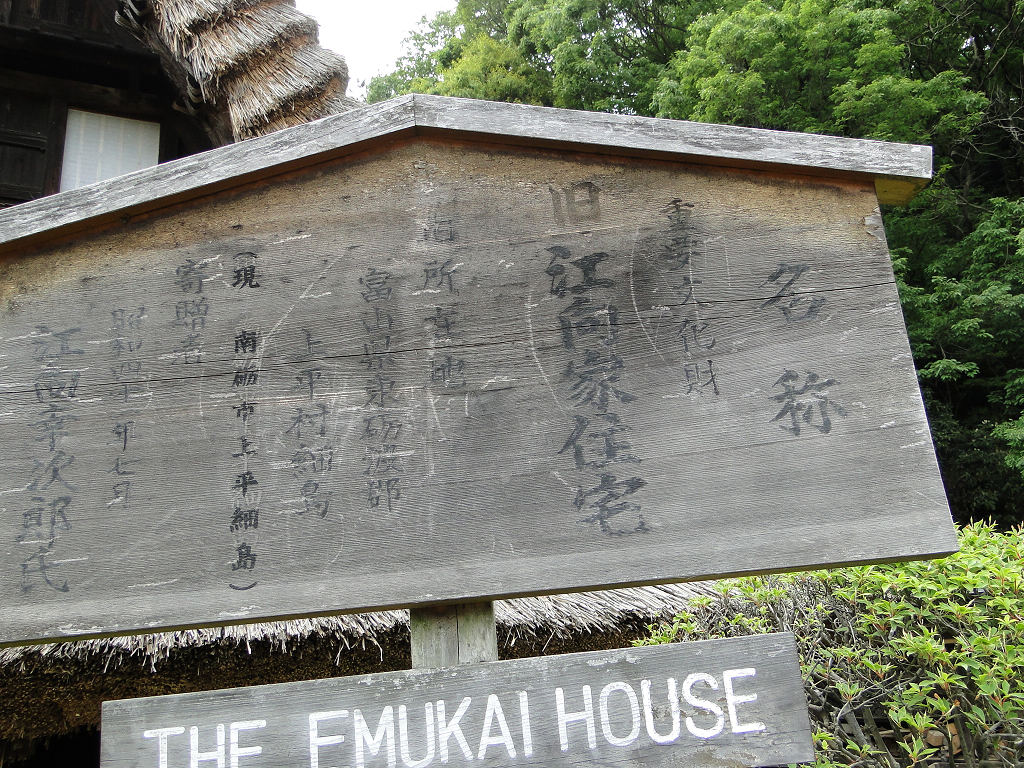 名称
重要文化財
旧江向家住宅
旧所在地
富山県東砺波郡
上平村細島
(現 南砺市上平細島)
寄贈者
昭和四十二年七月
江向幸次郎氏
THE EMUKAI HOUSE